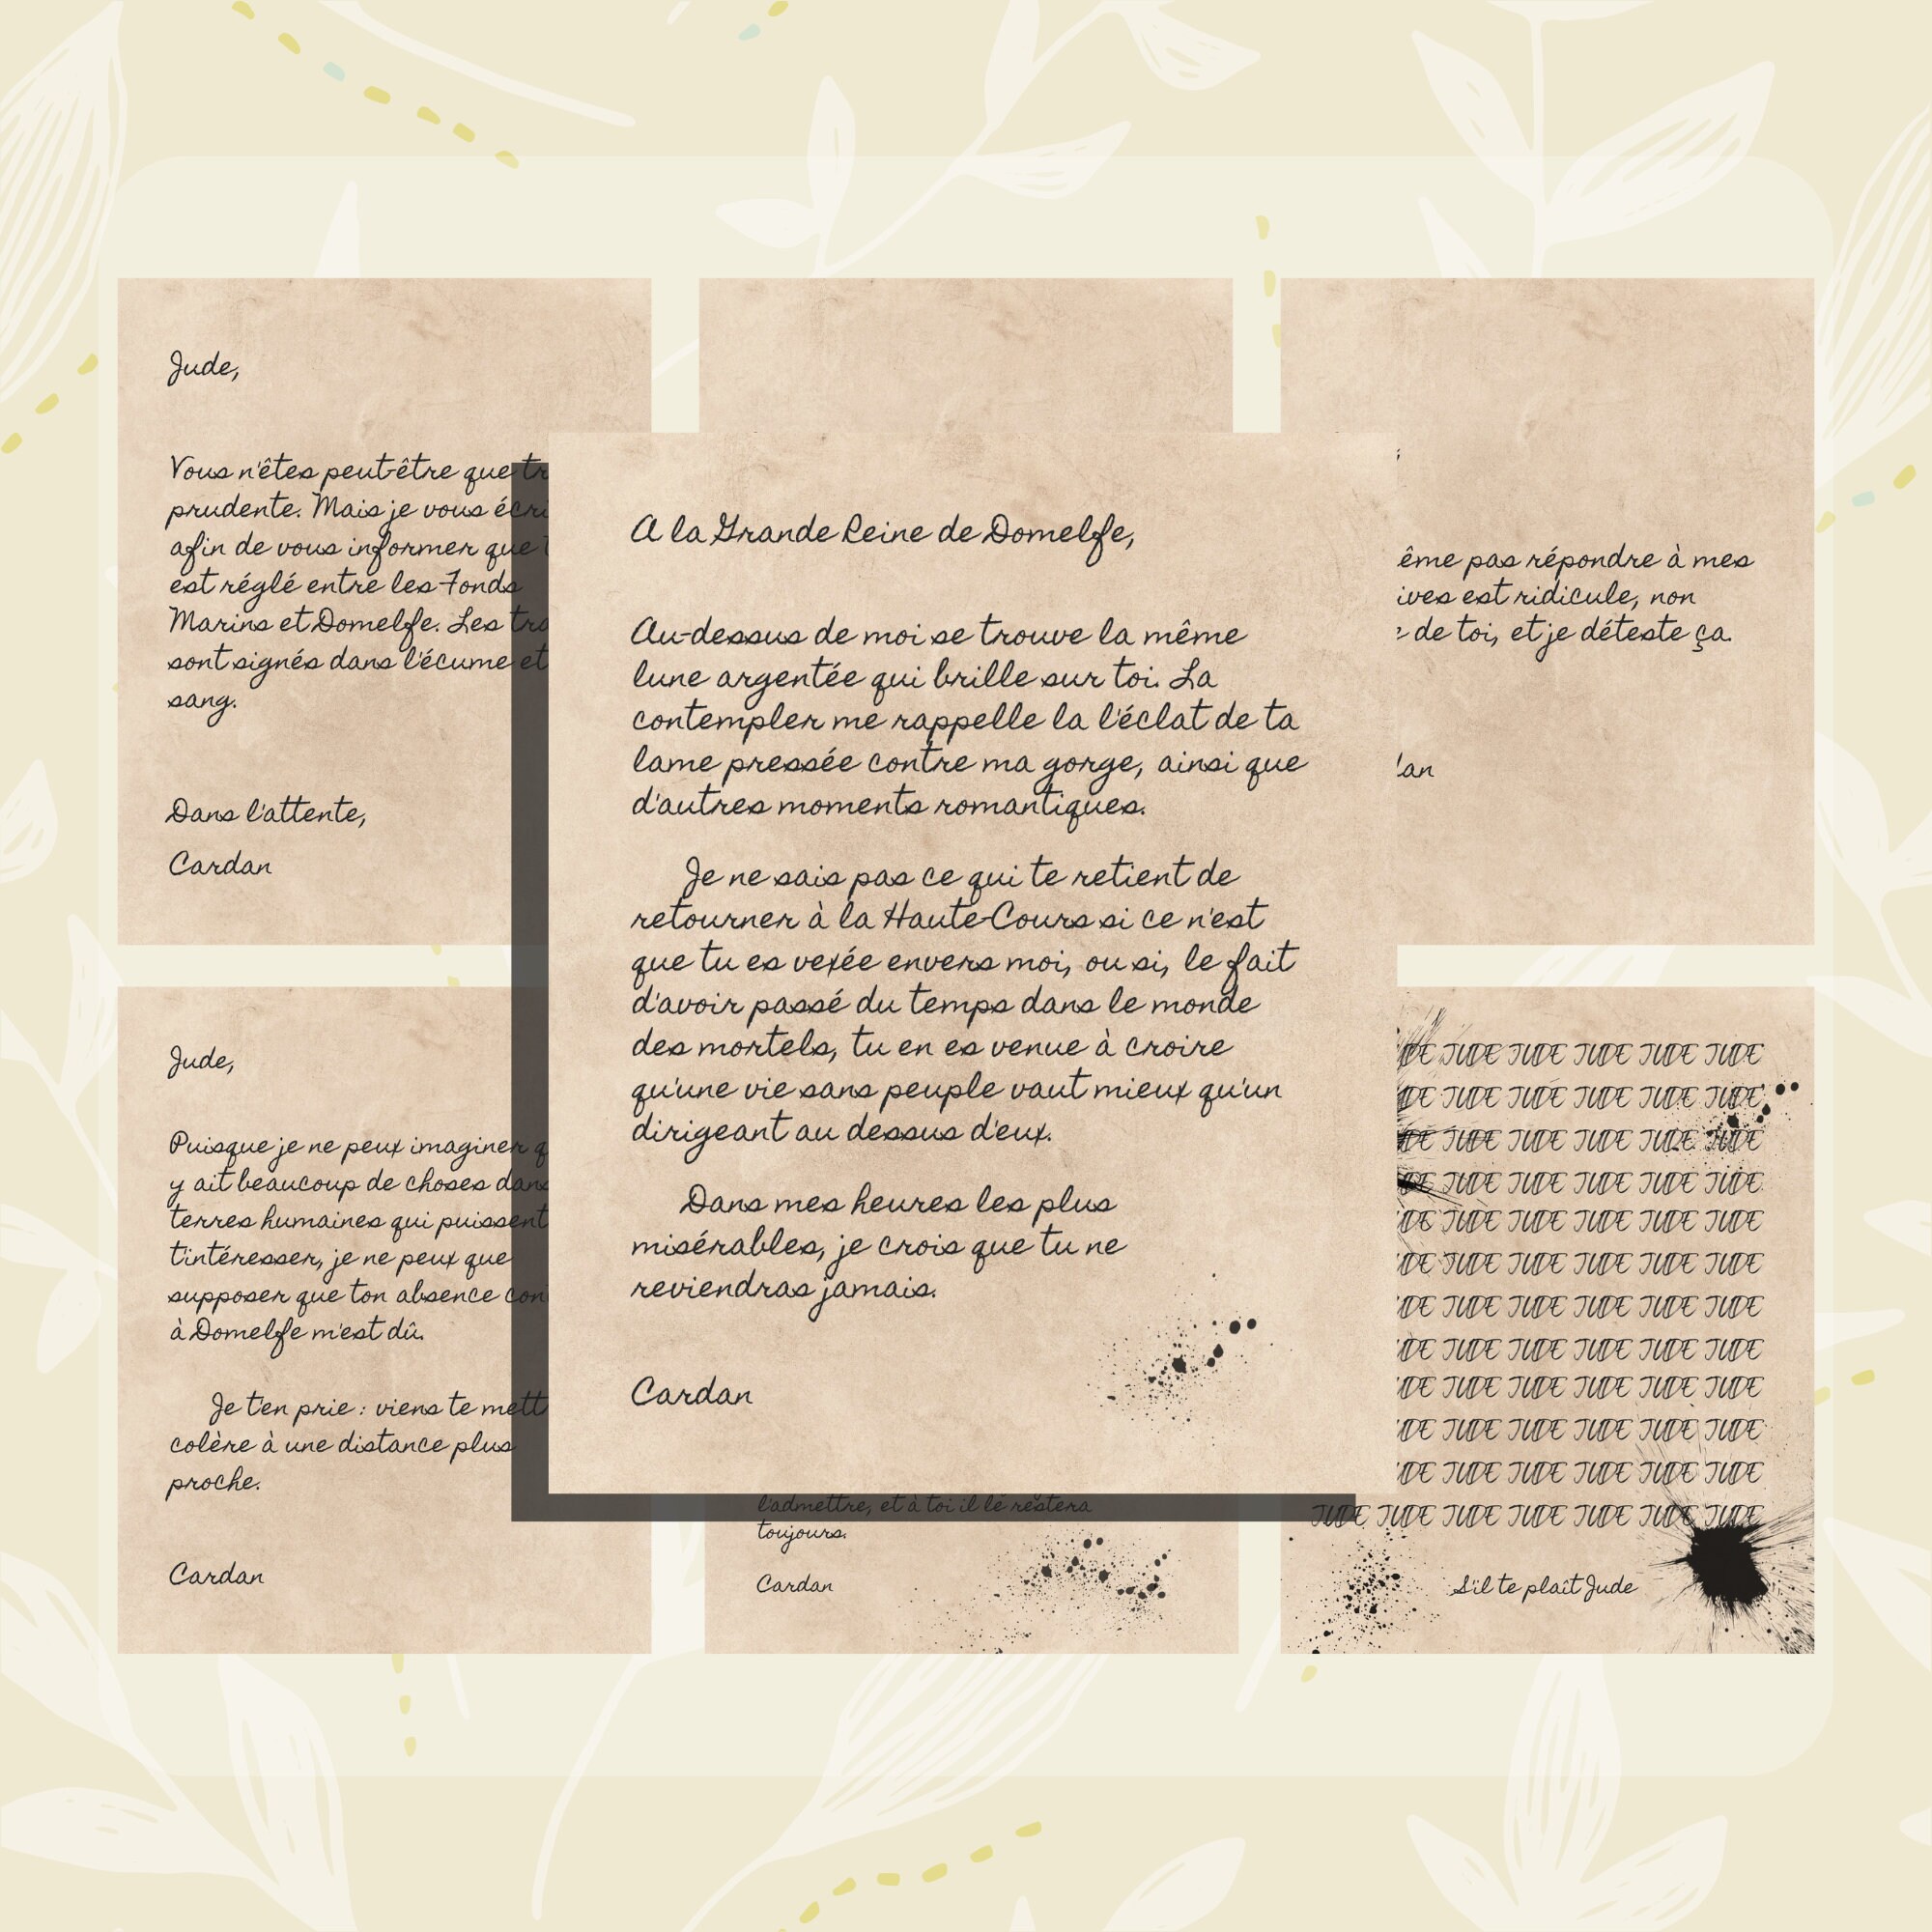 Jude,
Vous n'êtes peut-être que
prudente. Mais je vous
afin de vous informer que
est réglé entre les Fonds
Marins et Domelfe. Les
sont signés dans l'écume et
sang.
Dans l'attente,
Cardan
A la Grande Reine de Domelfe,
Au-dessus de moi se trouve la même
lune argentée qui brille sur toi. La
contempler me rappelle la l'éclat de ta
lame pressée contre ma gorge, ainsi que
d'autres moments romantiques.
Je ne sais pas ce qui te retient de
retourner à la Haute-Cours si ce n'est
que tu es vexée envers moi, ou si, le fait
d'avoir passé du temps dans le monde
des mortels, tu en es venue à croire
qu'une vie sans peuple vaut mieux qu'un
dirigeant au dessus d'eux.
Dans mes heures les plus
misérables, je crois que tu ne
reviendras jamais.
Cardan
pas répondre à mes
est ridicule, non
de toi, et je déteste ça.
Jude,
Puisque je ne peux imaginer
y ait beaucoup de choses
terres humaines qui puissent
t'intéresser, je ne peux que
supposer que ton absence
à Domelfe m'est dû.
Je t'en prie : viens te
colère à une distance plus
proche.
Cardan
l'admettre, et à toi il le restera
toujours.
Cardan
JUDE JUDE JUDE JUDE JUDE
JUDE JUDE JUDE JUDE JUDE
JUDE JUDE JUDE JUDE JUDE
JUDE JUDE JUDE JUDE JUDE
JUDE JUDE JUDE JUDE JUDE
JUDE JUDE JUDE JUDE JUDE
JUDE JUDE JUDE JUDE JUDE
JUDE JUDE JUDE JUDE JUDE
JUDE JUDE JUDE JUDE JUDE
JUDE JUDE JUDE JUDE JUDE
JUDE JUDE JUDE JUDE JUDE
JUDE JUDE JUDE JUDE JUDE JUDE JUDE
S'il te plaît Jude